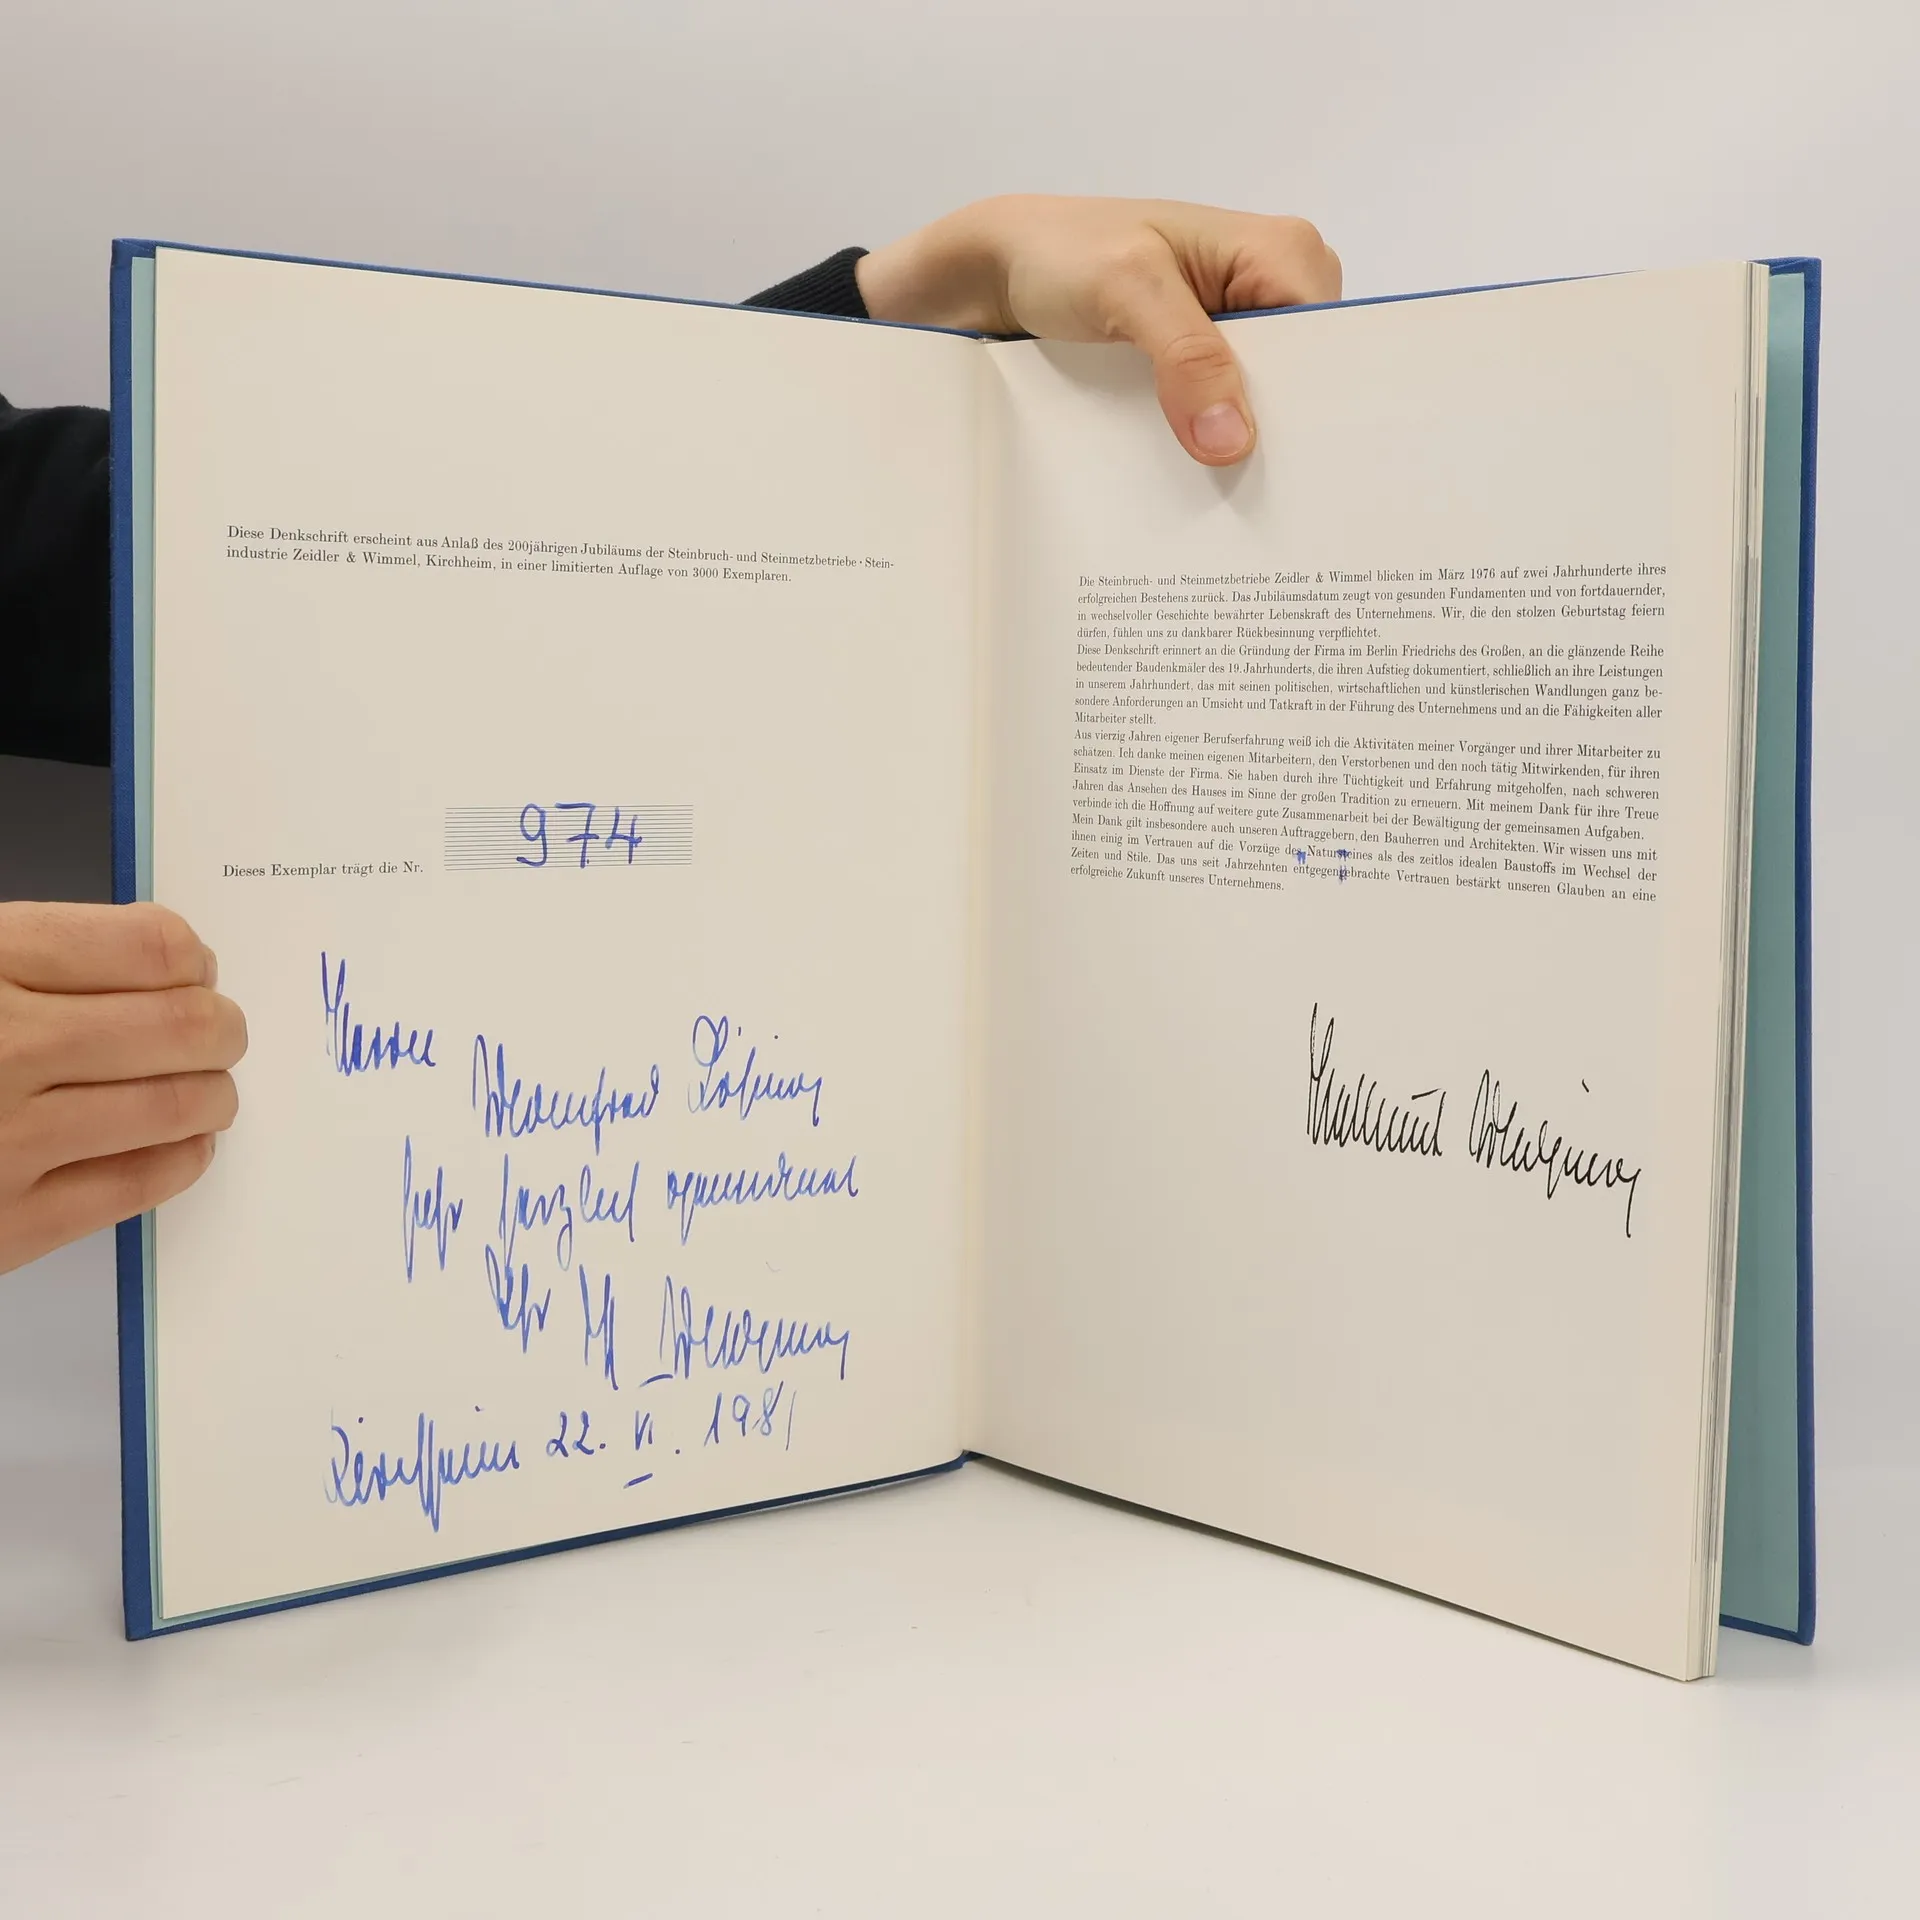 Diese Denkschrift erscheint aus Anlaß des 200jährigen Jubiläums der Steinbruch- und Steinmetzbetriebe · Stein-
industrie Zeidler & Wimmel, Kirchheim, in einer limitierten Auflage von 3000 Exemplaren.
Dieses Exemplar trägt die Nr. 974
Herrn
Manfred
sehr herzlich gewidmet
Ihr
Kirchheim 22. VI. 1981
Die Steinbruch- und Steinmetzbetriebe Zeidler & Wimmel blicken im März 1976 auf zwei Jahrhunderte ihres
erfolgreichen Bestehens zurück. Das Jubiläumsdatum zeugt von gesunden Fundamenten und von fortdauernder,
in wechselvoller Geschichte bewährter Lebenskraft des Unternehmens. Wir, die den stolzen Geburtstag feiern
dürfen, fühlen uns zu dankbarer Rückbesinnung verpflichtet.
Diese Denkschrift erinnert an die Gründung der Firma im Berlin Friedrichs des Großen, an die glänzende Reihe
bedeutender Baudenkmäler des 19. Jahrhunderts, die ihren Aufstieg dokumentiert, schließlich an ihre Leistungen
in unserem Jahrhundert, das mit seinen politischen, wirtschaftlichen und künstlerischen Wandlungen ganz be-
sondere Anforderungen an Umsicht und Tatkraft in der Führung des Unternehmens und an die Fähigkeiten aller
Mitarbeiter stellt.
Aus vierzig Jahren eigener Berufserfahrung weiß ich die Aktivitäten meiner Vorgänger und ihrer Mitarbeiter zu
schätzen. Ich danke meinen eigenen Mitarbeitern, den Verstorbenen und den noch tätig Mitwirkenden, für ihren
Einsatz im Dienste der Firma. Sie haben durch ihre Tüchtigkeit und Erfahrung mitgeholfen, nach schweren
Jahren das Ansehen des Hauses im Sinne der großen Tradition zu erneuern. Mit meinem Dank für ihre Treue
verbinde ich die Hoffnung auf weitere gute Zusammenarbeit bei der Bewältigung der gemeinsamen Aufgaben.
Mein Dank gilt insbesondere auch unseren Auftraggebern, den Bauherren und Architekten. Wir wissen uns mit
ihnen einig im Vertrauen auf die Vorzüge des Natursteines als des zeitlos idealen Baustoffs im Wechsel der
Zeiten und Stile. Das uns seit Jahrzehnten entgegengebrachte Vertrauen bestärkt unseren Glauben an eine
erfolgreiche Zukunft unseres Unternehmens.